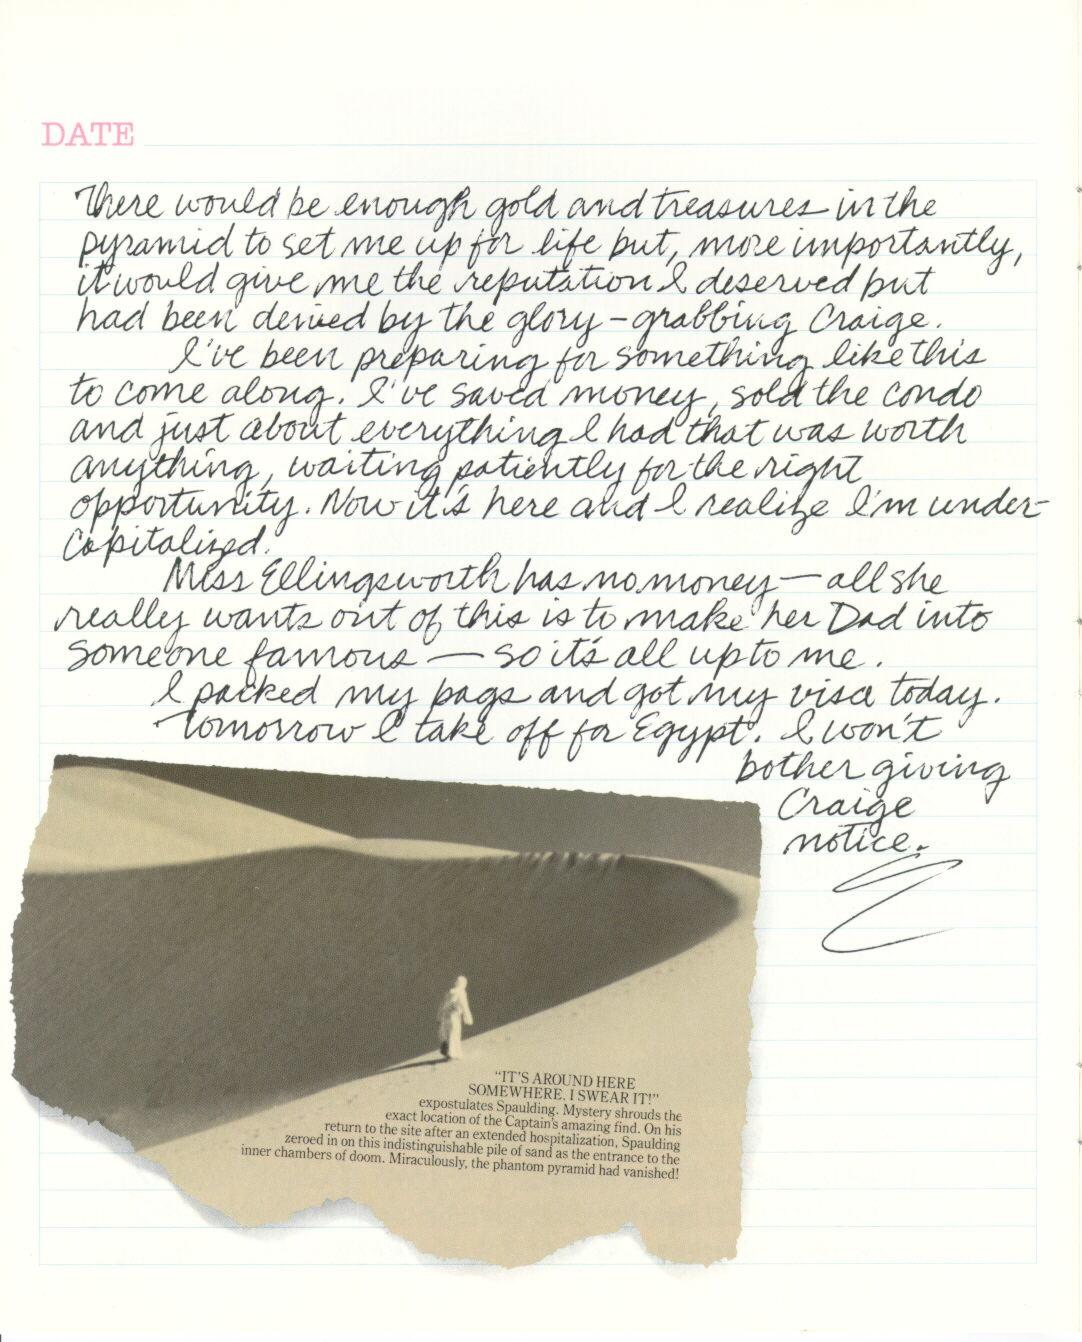 DATE
There would be enough gold and treasures in the
pyramid to set me up for life but, more importantly,
it would give me the reputation I deserved but
had been denied by the glory-grabbing Craige.
I've been preparing for something like this
to come along. I've saved money, sold the condo
and just about everything I had that was worth
anything, waiting patiently for the right
opportunity. Now it's here and I realize I'm under-
capitalized.
Miss Ellingsworth has no money — all she
really wants out of this is to make her Dad into
someone famous — so it's all up to me.
I packed my bags and got my visa today.
Tomorrow I take off for Egypt. I won't
bother giving
Craige
notice.
"IT'S AROUND HERE
SOMEWHERE, I SWEAR IT!"
expostulates Spaulding. Mystery shrouds the
exact location of the Captain's amazing find. On his
return to the site after an extended hospitalization, Spaulding
zeroed in on this indistinguishable pile of sand as the entrance to the
inner chambers of doom. Miraculously, the phantom pyramid had vanished!